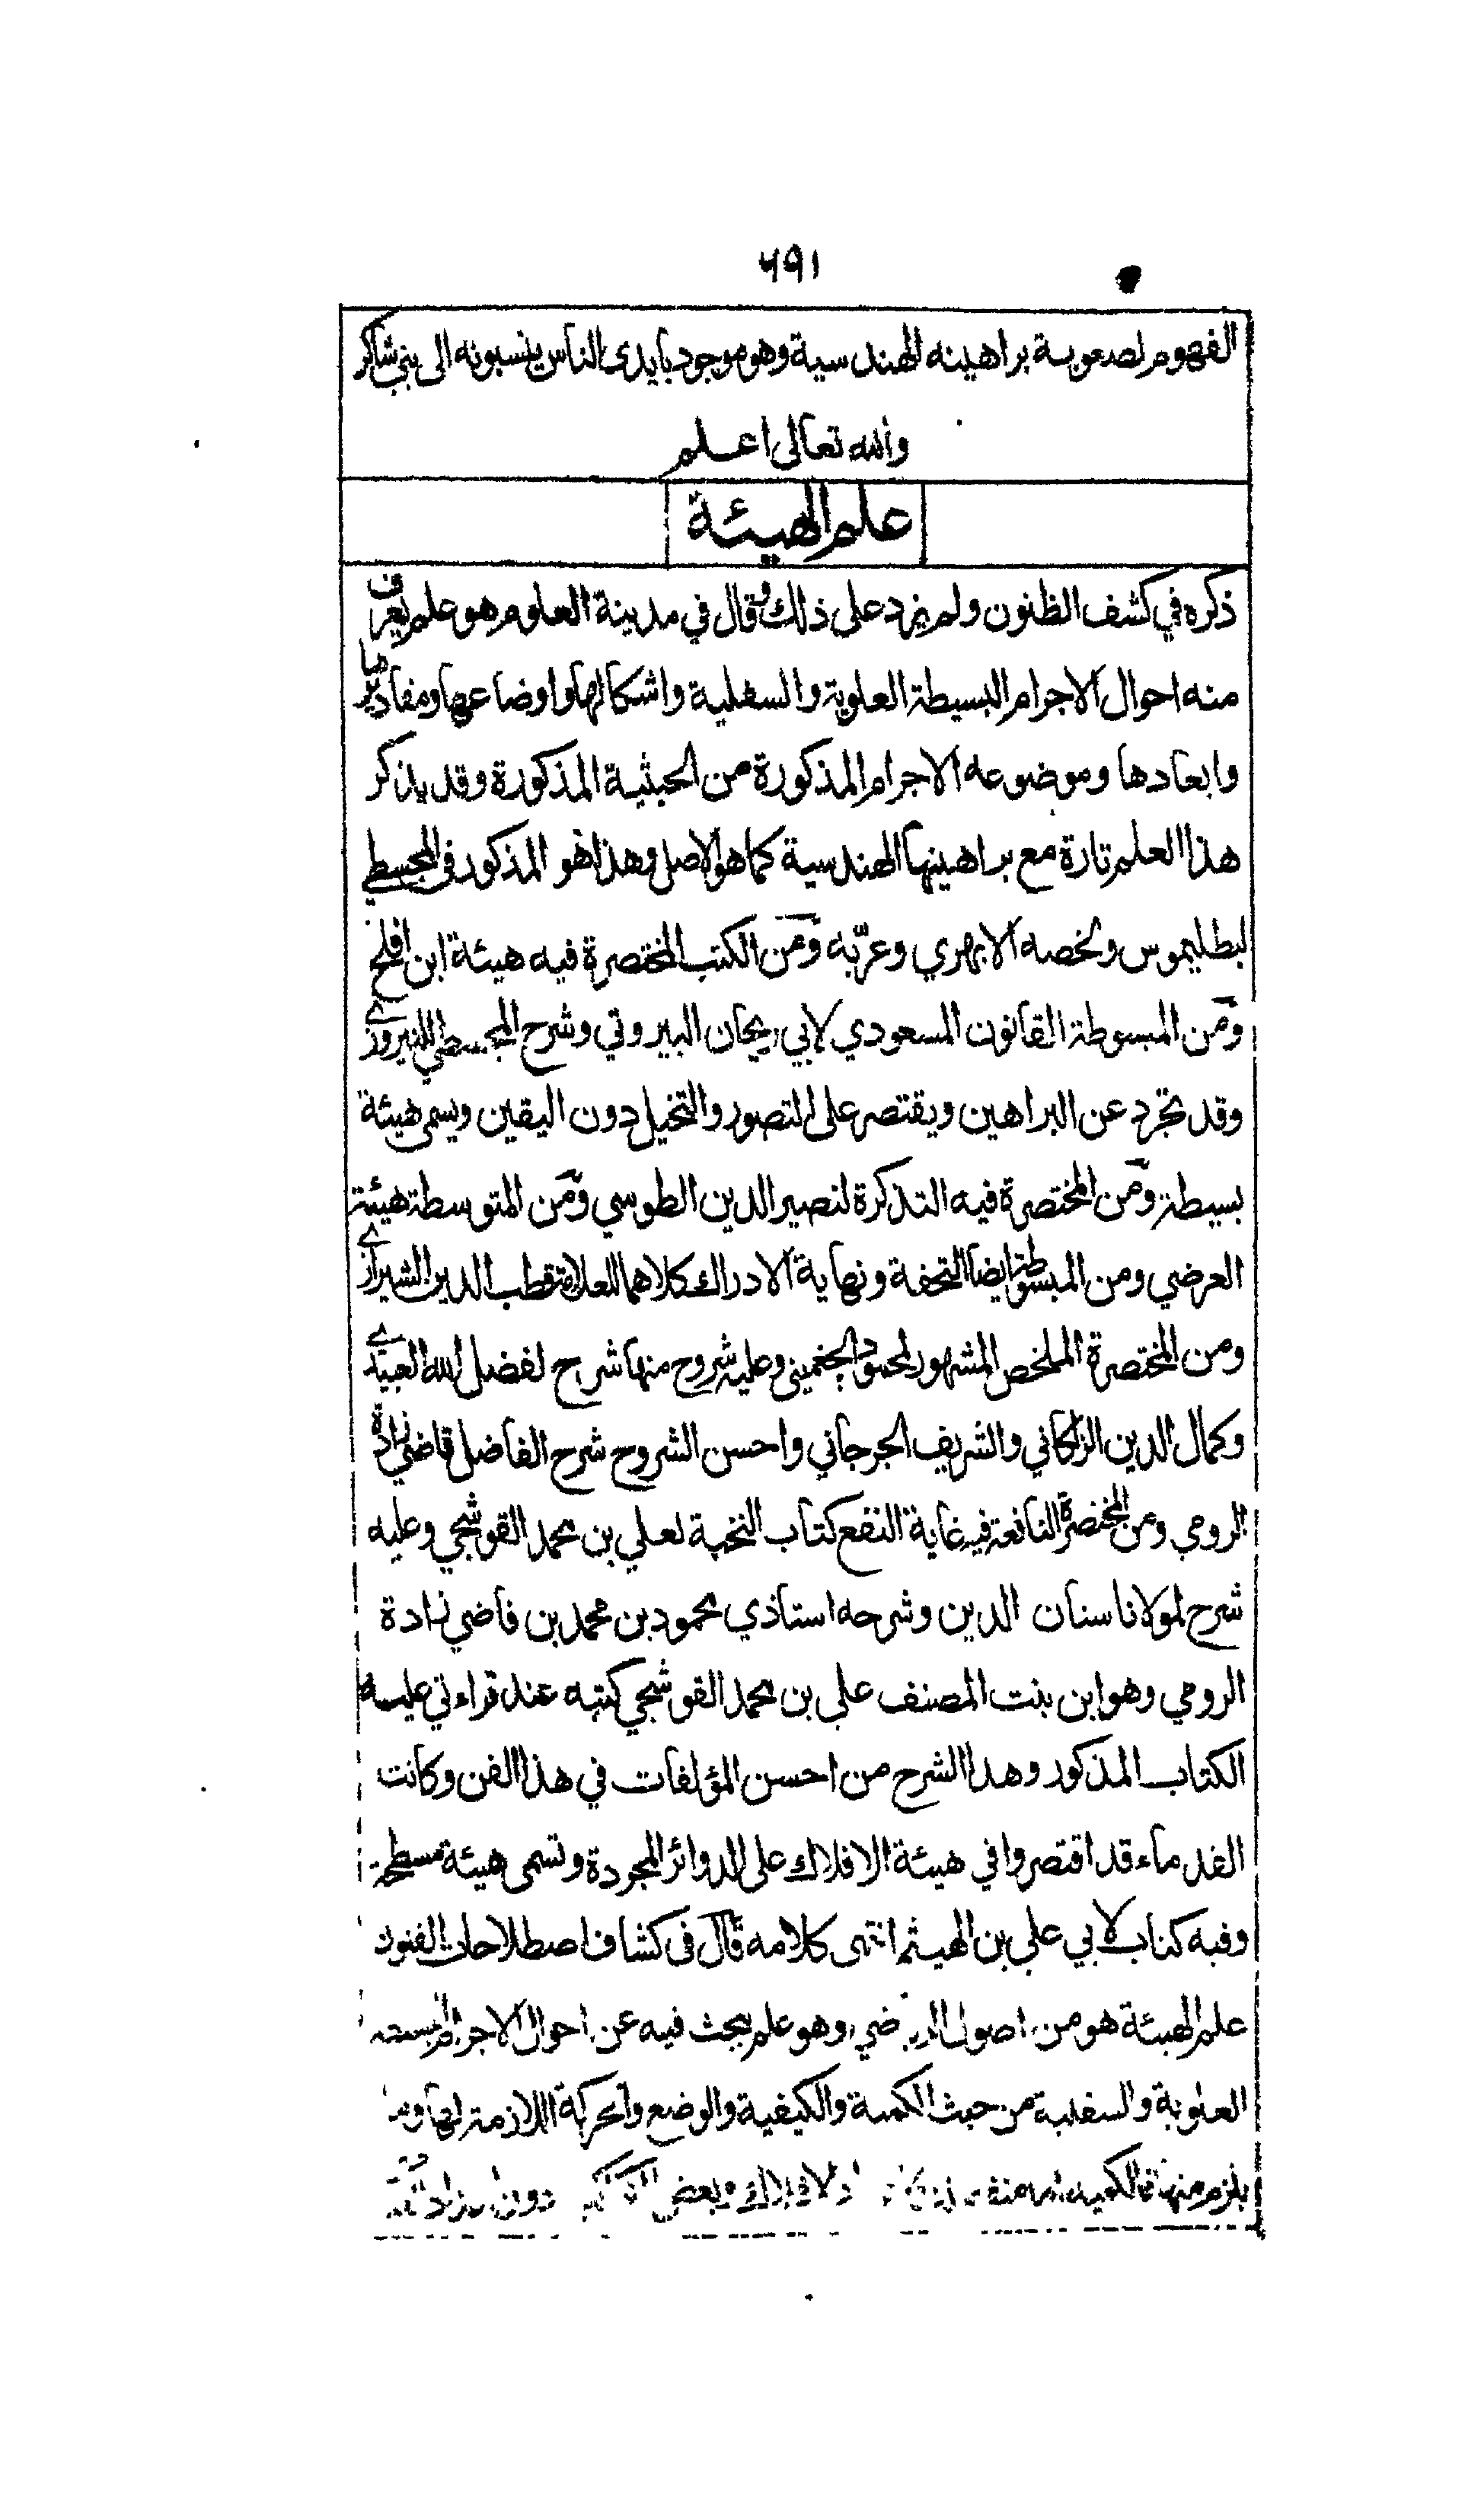 ٦٩١
الفهوم لصعوبة براهينه الهندسية وهو موجود بايدى الناس ينسبونه الى بني شاكر
والله تعالى اعلم
علم الهيئة
ذكره في كشف الظنون ولم يزد على ذلك وقال في مدينة العلوم هو علم يعرف
منه احوال الاجرام البسيطة العلوية والسفلية واشكالها واوضاعها ومقاديرها
وابعادها وموضوعه الاجرام المذكورة من الحيثية المذكورة وقد يذكر
هذا العلم تارة مع براهينها الهندسية كما هو الاصل وهذا هو المذكور فى المجسطي
لبطليموس ولخصه الابهري وعرّبه ومن الكتب المختصرة فيه هيئة ابن افلح
ومن المبسوطة القانون المسعودي لابي ريحان البيروتي وشرح المجسطي للنيروزي
وقد تجرد عن البراهين ويقتصر على التصور والتخيل دون اليقين ويسمى هيئة
بسيطة ومن المختصرة فيه التذكرة لنصير الدين الطوسي ومن المتوسطة هيئة
العرضي ومن المبسوطة ايضا التحفة ونهاية الادراك كلاهما للعلامة قطب الدين الشيرازي
ومن المختصرة الملخص المشهور لمحمود الجغميني وعليه شروح منها شرح لفضل الله العبيدي
وكمال الدين الزاكاني والشريف الجرجاني واحسن الشروح شرح الفاضل قاضي زادة
الرومي ومن المختصرة النافعة فيه غاية النفع كتاب النخبة لعلي بن محمد القوشجي وعليه
شرح لمولانا سنان الدين وشرحه استاذي محمود بن محمد بن قاضي زادة
الرومي وهو ابن بنت المصنف علي بن محمد القوشجي كتبه عند قراءتي عليه
الكتاب المذكور وهذا الشرح من احسن المؤلفات في هذا الفن وكانت
القدماء قد اقتصروا في هيئة الافلاك على الدوائر المجردة وتسمى هيئة مسطحة
وفيه كتاب لابي علي بن الهيثم انتهى كلامه قال فى كشاف اصطلاحات الفنون
علم الهيئة هو من اصول الرياضي وهو علم يبحث فيه عن احوال الاجرام البسيطة
العلوية والسفلية من حيث الكمية والكيفية والوضع والحركة اللازمة لها وما
يلزم منها فالكمية الافلاك وبعض دون